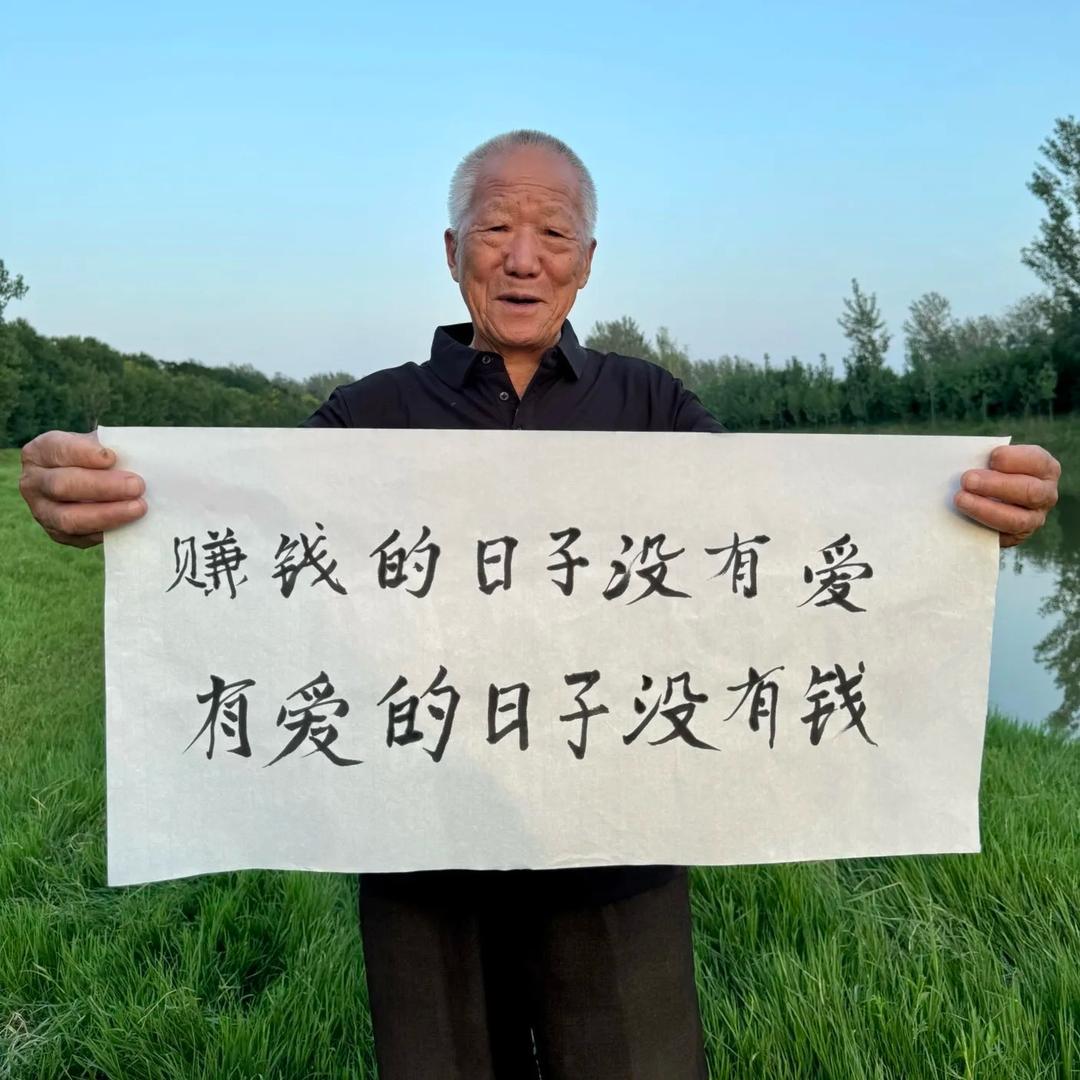 赚钱的日子没有爱
有爱的日子没有钱